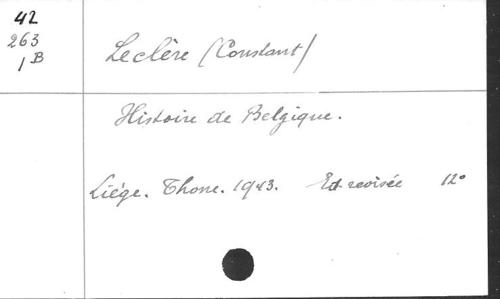 42
263
1B
Leclère (Constant)
Histoire de Belgique.
Liége. Thone. 1943. Ed revisée 12°